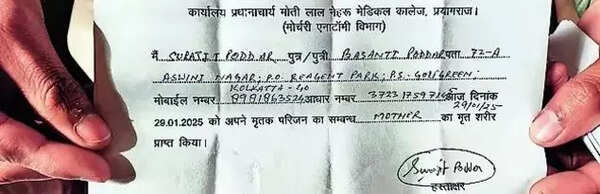 कार्यालय प्रधानाचार्य मोती लाल नेहरू मेडिकल कालेज, प्रयागराज।
(मोर्चरी एनाटॉमी विभाग)
मैं SURAJIT PODDAR पुत्र/पुत्री BASANTI PODDAR पता 72-A
ASWINI NAGAR; P.O. REAGENT PARK; P.S. GOLFGREEN;
KOLKATTA - 40
मोबाईल नम्बर आधार नम्बर आज दिनांक
29/01/25
29.01.2025 को अपने मृतक परिजन का सम्बन्ध MOTHER का मृत शरीर
प्राप्त किया।
Surajit Poddar
हस्ताक्षर